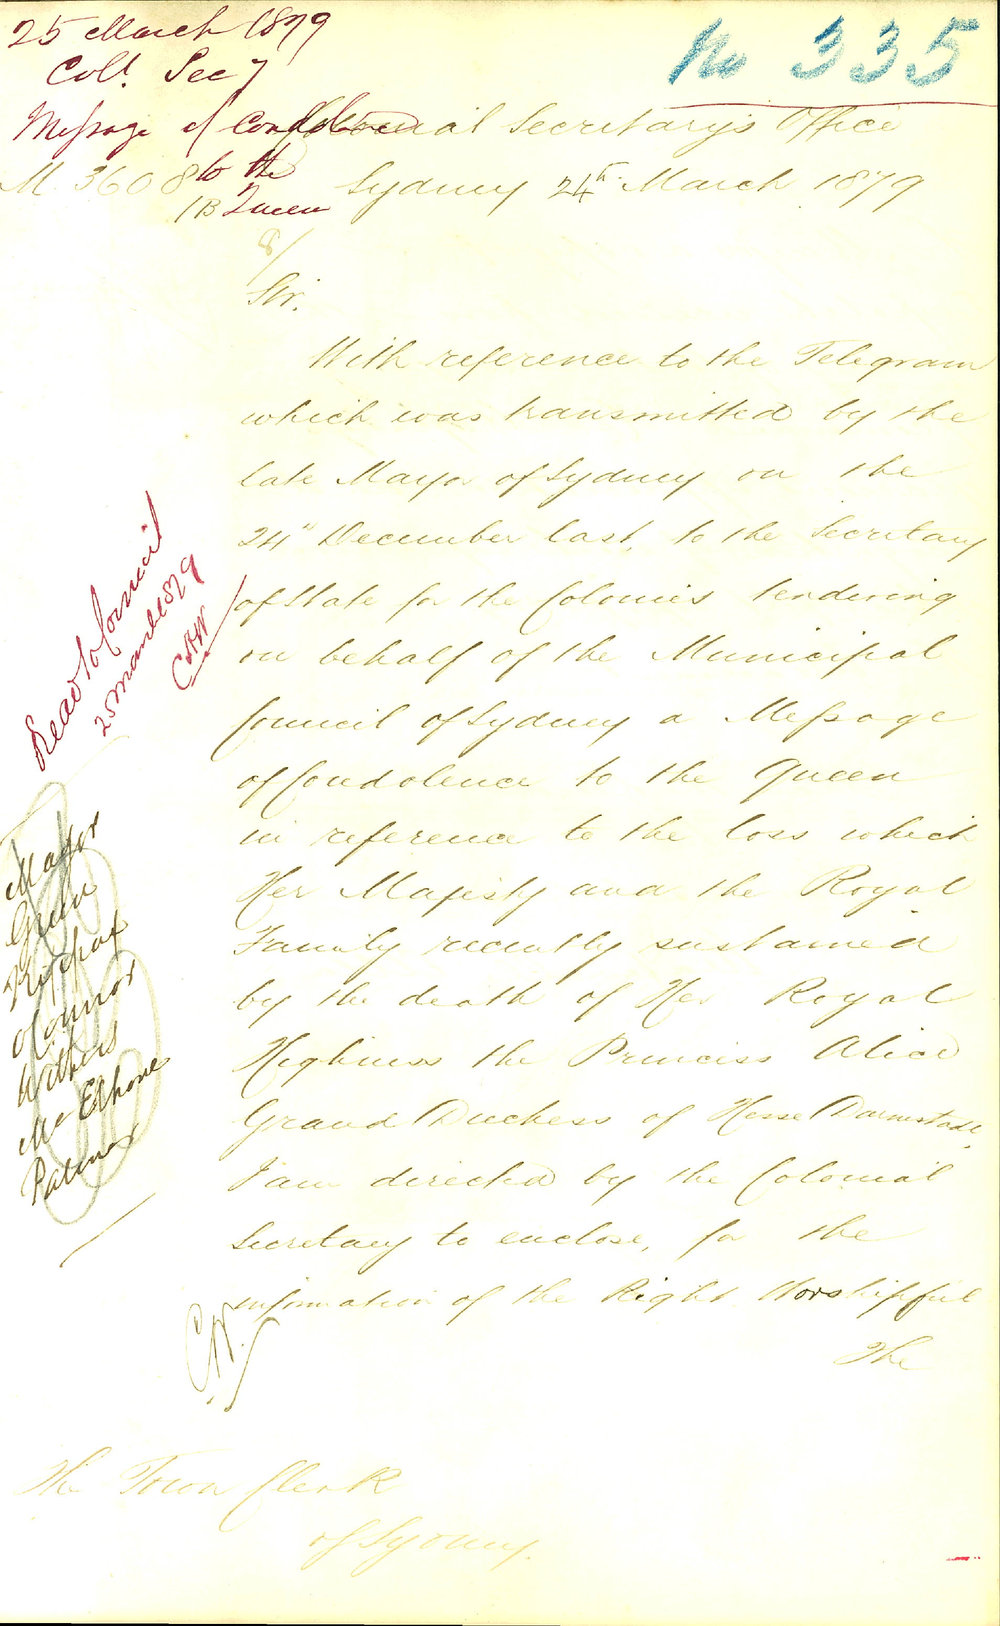 25 March 1879
Coll. Secy
No 335
Message of Condolence
to the
Queen
Colonial Secretary's Office
M. 3608
1B
Sydney 24th March 1879
Sir.
With reference to the Telegram
which was transmitted by the
late Mayor of Sydney on the
24th December last, to the Secretary
of State for the Colonies tendering
on behalf of the Municipal
Council of Sydney a Message
of Condolence to the Queen
in reference to the loss which
Her Majesty and the Royal
Family recently sustained
by the death of Her Royal
Highness the Princess Alice
Grand Duchess of Hesse Darmstadt,
I am directed by the Colonial
Secretary to enclose, for the
information of the Right Worshipful
The
The Town Clerk
of Sydney.
Read to Council
25 March 1879
CHW
Mayor
Green
Kippax
O'Connor
Withers
McElhone
Palmer